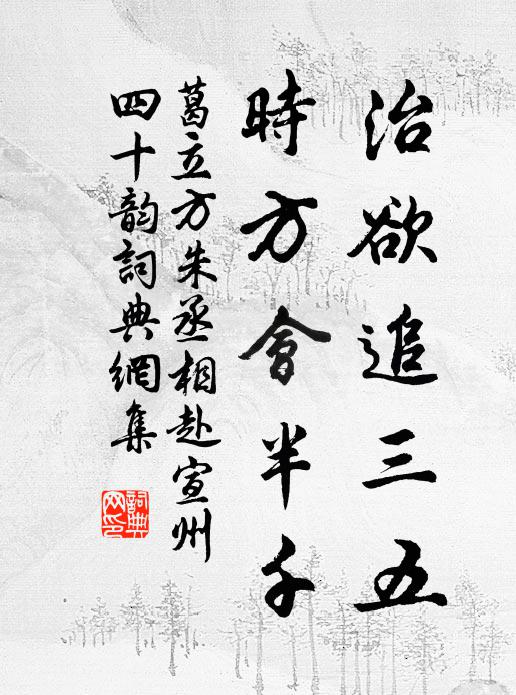 治欲追三五
時方會半千
葛立方朱丞相赴宣州
四十韵詞典網集
詞典
网印